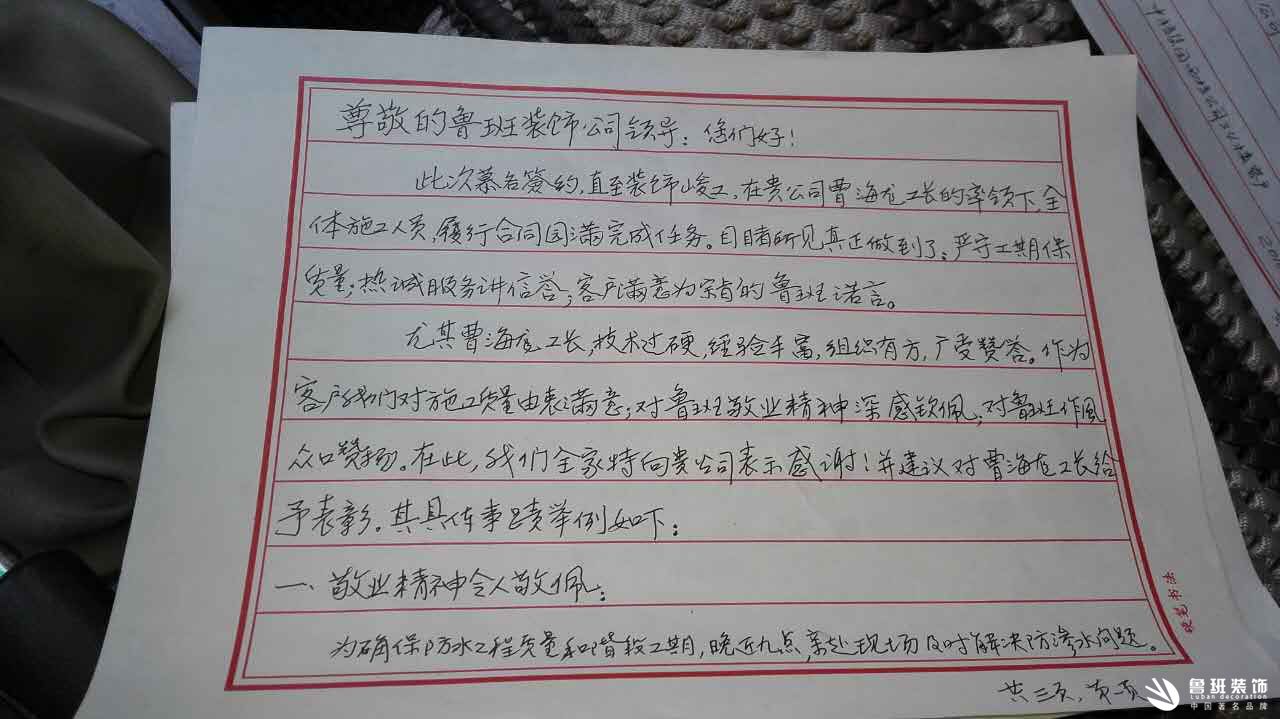 尊敬的鲁班装饰公司领导：您们好！
此次慕名签约，直至装饰峻工，在贵公司曹海龙工长的率领下，全
体施工人员，履行合同园满完成任务。目睹所见真正做到了：严守工期保
质量；热诚服务讲信誉；客户满意为宗旨的鲁班诺言。
尤其曹海龙工长，技术过硬，经验丰富，组织有方，广受赞答。作为
客户我们对施工质量由表满意；对鲁班敬业精神深感钦佩，对鲁班作风
众口赞扬。在此，我们全家特向贵公司表示感谢！并建议对曹海龙工长给
予表彰。其具体事迹举例如下：
一、敬业精神令人敬佩：
为确保防水工程质量和阶段工期，晚近九点，亲赴现场及时解决防渗水问题。
共三页，
晓笔书法
鲁班装饰
Luban decoration
中国著名品牌